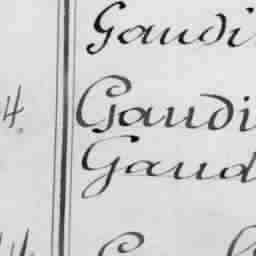 Gaudi
4. Gaudi
Gaud